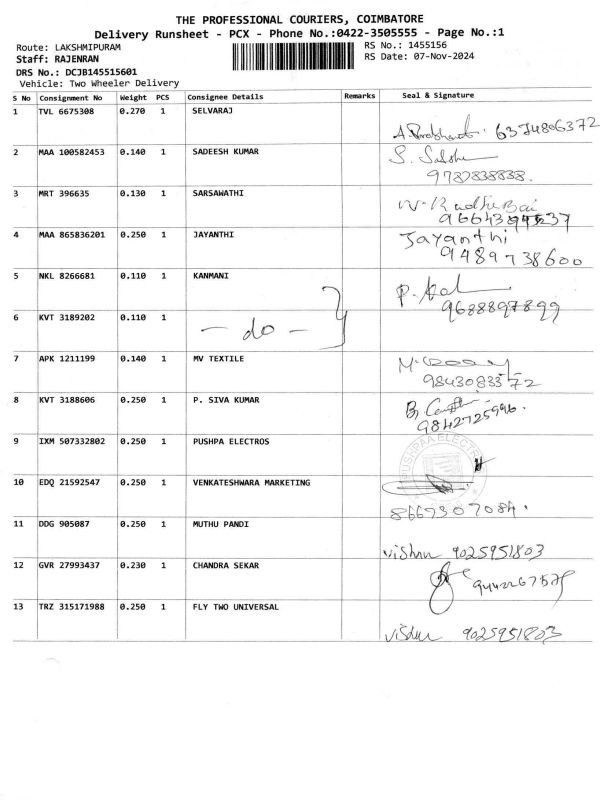 THE PROFESSIONAL COURIERS, COIMBATORE
Delivery Runsheet - PCX - Phone No.:0422-3505555 - Page No.:1
Route: LAKSHMIPURAM
RS No.: 1455156
Staff: RAJENRAN
RS Date: 07-Nov-2024
DRS No.: DCJB145515601
Vehicle: Two Wheeler Delivery
S No Consignment No Weight PCS Consignee Details Remarks Seal & Signature
1 TVL 6675308 0.270 1 SELVARAJ
6374806372
2 MAA 100582453 0.140 1 SADEESH KUMAR
9782838838.
3 MRT 396635 0.130 1 SARSAWATHI
4 MAA 865836201 0.250 1 JAYANTHI Jayanthi
9489738600
5 NKL 8266681 0.110 1 KANMANI
9688897899
6 KVT 3189202 0.110 1
- do -
7 APK 1211199 0.140 1 MV TEXTILE
9843083372
8 KVT 3188606 0.250 1 P. SIVA KUMAR
9842725996.
9 IXM 507332802 0.250 1 PUSHPA ELECTROS PUSHPAA ELECTR
10 EDQ 21592547 0.250 1 VENKATESHWARA MARKETING
8667307084.
11 DDG 905087 0.250 1 MUTHU PANDI
vishnu 9025951803
12 GVR 27993437 0.230 1 CHANDRA SEKAR
13 TRZ 315171988 0.250 1 FLY TWO UNIVERSAL
9025951803